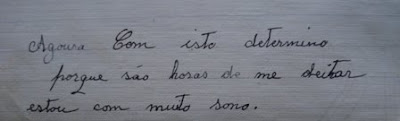 Agoura Com isto determino
porque são horas de me deitar
estou com muto sono.